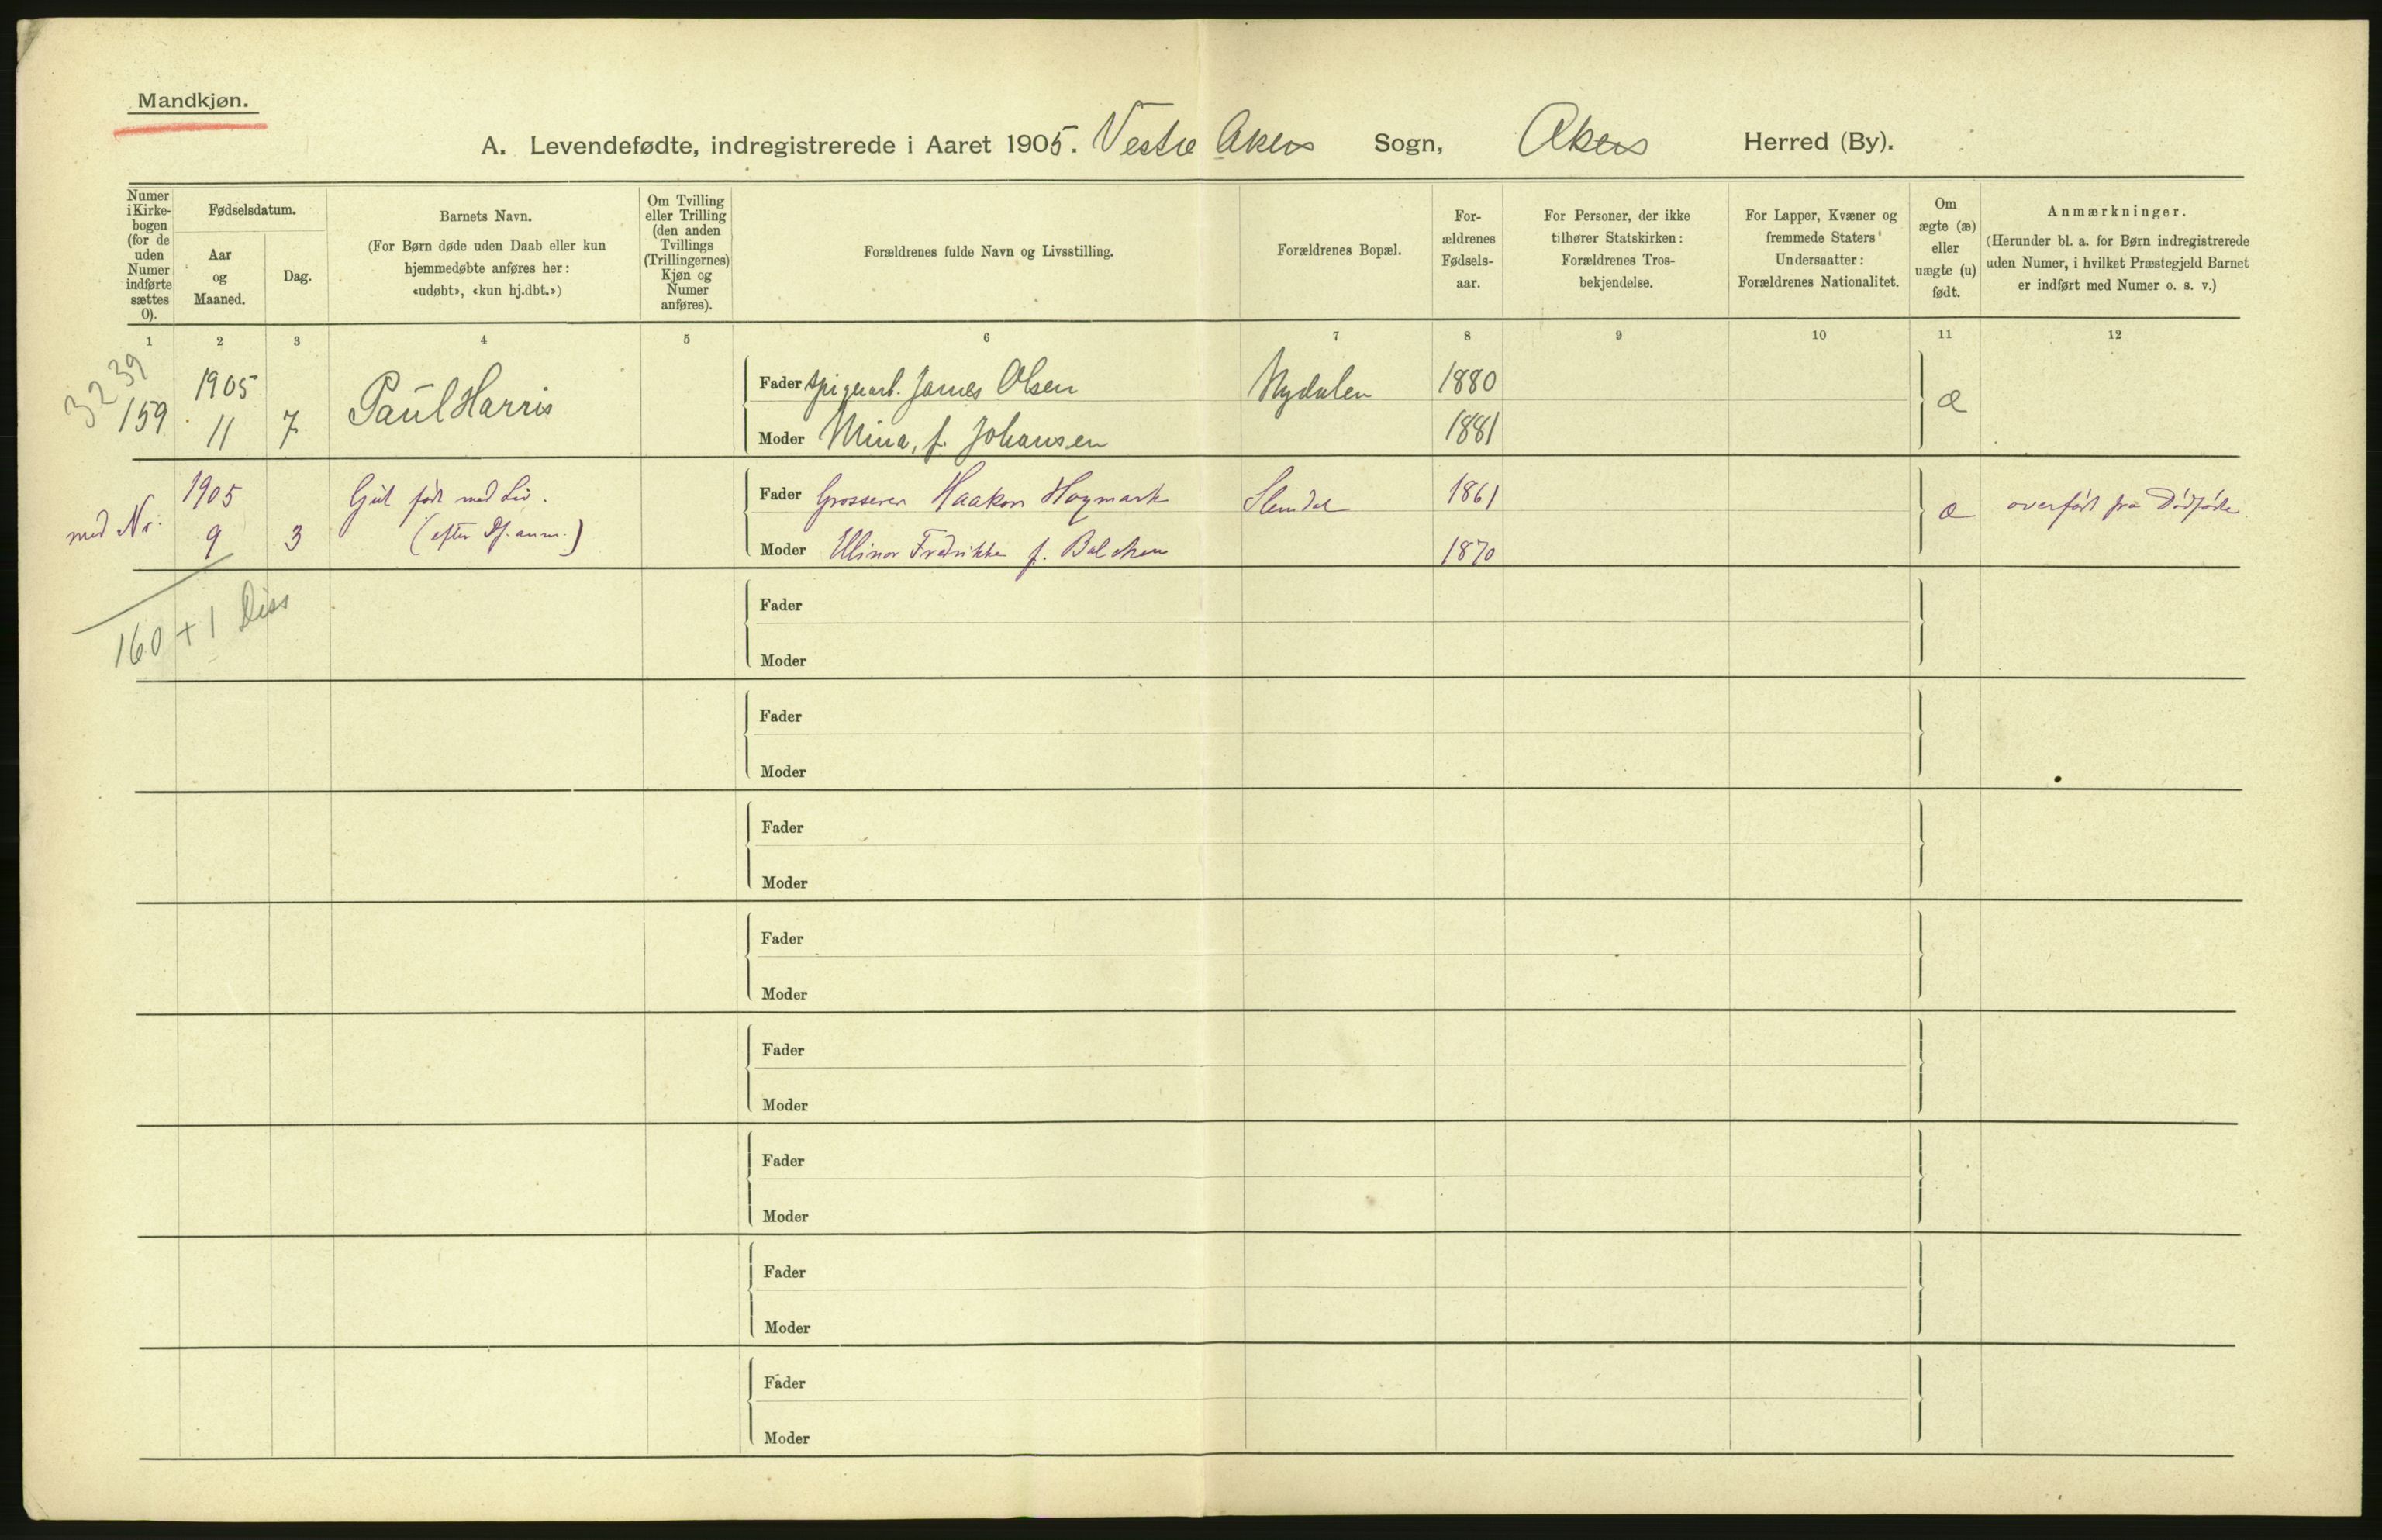 Mandkjøn.
A. Levendefødte, indregistrerede i Aaret 1905. Vestre Akers Sogn, Akers Herred (By).
Numer i Kirke-bogen (for de uden Numer indførte sættes 0).
Fødselsdatum.
Aar og Maaned.
Dag.
Barnets Navn.
(For Børn døde uden Daab eller kun
hjemmedøbte anføres her:
«udøbt», «kun hj.dbt.»)
Om Tvilling
eller Trilling
(den anden
Tvillings
(Trillingernes)
Kjøn og
Numer
anføres).
Forældrenes fulde Navn og Livsstilling.
Forældrenes Bopæl.
For-
ældrenes
Fødsels-
aar.
For Personer, der ikke
tilhører Statskirken:
Forældrenes Tros-
bekjendelse.
For Lapper, Kvæner og
fremmede Staters
Undersaatter:
Forældrenes Nationalitet.
Om
ægte (æ)
eller
uægte (u)
født.
Anmærkninger.
(Herunder bl. a. for Børn indregistrerede
uden Numer, i hvilket Præstegjeld Barnet
er indført med Numer o. s. v.)
1 2 3 4 5 6 7 8 9 10 11 12
3239
159 1905 11 7 Paul Harris
Fader James Olsen Nydalen 1880 æ
Moder Mina, f. Johansen 1881
med Nr. 1905 9 3 Gut født med Liv.
(efter Df. anm.)
Fader Grosserer Haakon Hoymark Slemdal 1861 æ overført fra Dødfødte
Moder Ellinor Fredrikke f. Balchen 1870
160 + 1 Diss
Fader
Moder
Fader
Moder
Fader
Moder
Fader
Moder
Fader
Moder
Fader
Moder
Fader
Moder
Fader
Moder